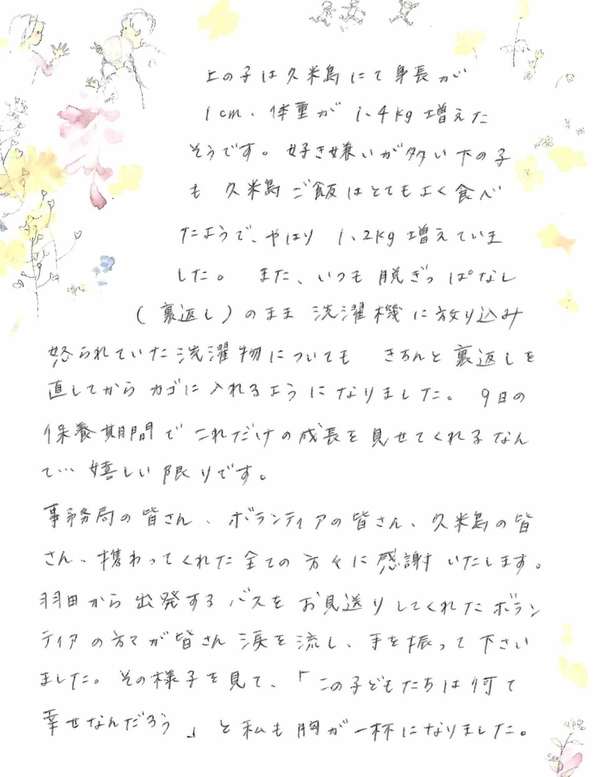 上の子は久米島にて身長が
1cm、体重が1.4kg増えた
そうです。好き嫌いが多い下の子
も久米島ご飯はとてもよく食べ
たようで、やはり1.2kg増えていま
した。また、いつも脱ぎっぱなし
(裏返し)のまま洗濯機に放り込み
怒られていた洗濯物についてもきちんと裏返しを
直してからカゴに入れるようになりました。9日の
保養期間でこれだけの成長を見せてくれるなん
て…嬉しい限りです。
事務局の皆さん、ボランティアの皆さん、久米島の皆
さん、携わってくれた全ての方々に感謝いたします。
羽田から出発するバスをお見送りしてくれたボラン
ティアの方々が皆さん涙を流し、手を振って下さい
ました。その様子を見て、「この子どもたちは何て
幸せなんだろう」と私も胸が一杯になりました。